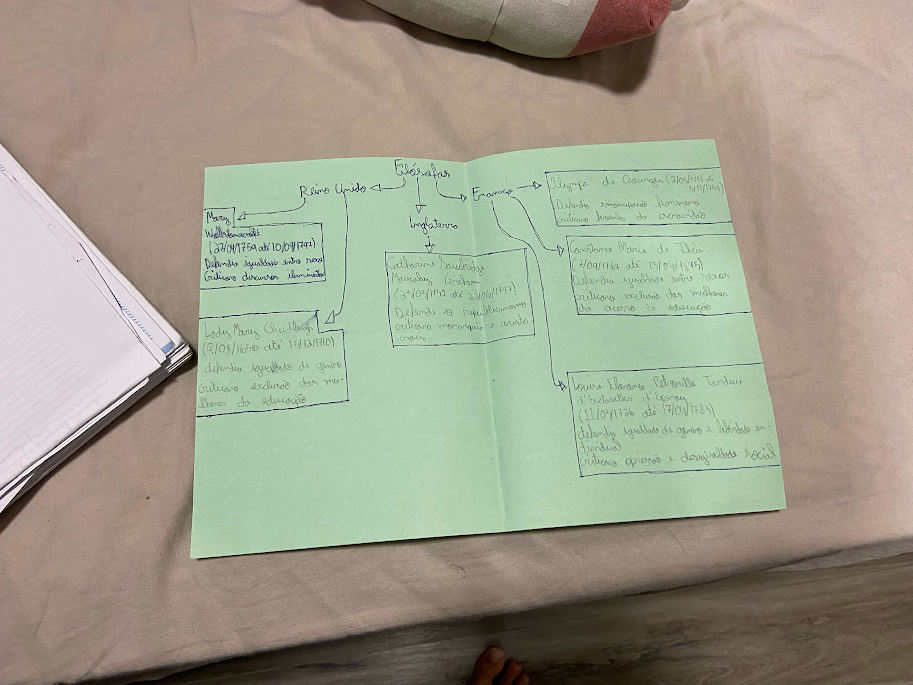 Filósofas
Reino Unido
Inglaterra
França
Mary
Wollstonecraft
(27/04/1759 até 10/09/1797)
Defendia igualdade entre sexos
Criticava discursos iluministas
Lady Mary Chudleigh
(2/08/1656 até 15/12/1710)
defendia igualdade de genero
Criticava exclusão das mu-
lheres da educação
Catharine
Macaulay Graham
até 22/06/1791)
Defende o republicanismo
criticava monarquia e aristo
cracia
Olympe de Gouges (7/05/1748 até
3/11/1793)
Defendia emancipação feminina
Criticava
Constance Marie de
(7/09/1767 até 13/04/1845)
Defendia igualdade entre sexos
criticava exclusão das mulheres
do acesso à educação
Louise Florence Pétronille Tardieu
d'Esclavelles d'Épinay
(11/03/1726 até 17/04/1783)
defendia igualdade de genero e liberdade in-
dividual
Criticava opressão e desigualdade social